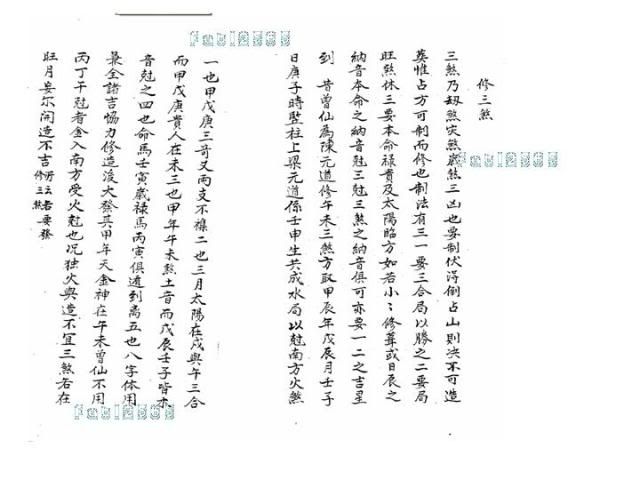 修三煞
三煞乃刼煞灾煞歳煞三凶也要制伏得倒占山則决不可造
塟惟占方可制而修也制法有三一要三合局以勝之二要局
旺煞休三要本命禄貴及太陽臨方如若小〻修葺或日辰之
納音本命之納音尅三尅三煞之納音俱可亦要一二之吉星
到 昔曾仙為陳元道修午未三煞方取甲辰年戊辰月壬子
日庚子時竪柱上梁元道係壬申生共成水局以尅南方火煞
一也甲戊庚三竒又两支不襍二也三月太陽在戌與午三合
而甲戊庚貴人在未三也甲年午未煞土音而戊辰壬子皆木
音尅之四也命馬壬寅歳禄馬丙寅俱遁到离五也八字体用
兼全諸吉恊力修造後大發其甲年天金神在午未曾仙不用
丙丁干尅者金入南方受火尅也况独火與造不冝三煞若在
旺月妄尔開造不吉
修三煞
Fab12565
Fab12565
Fab12565